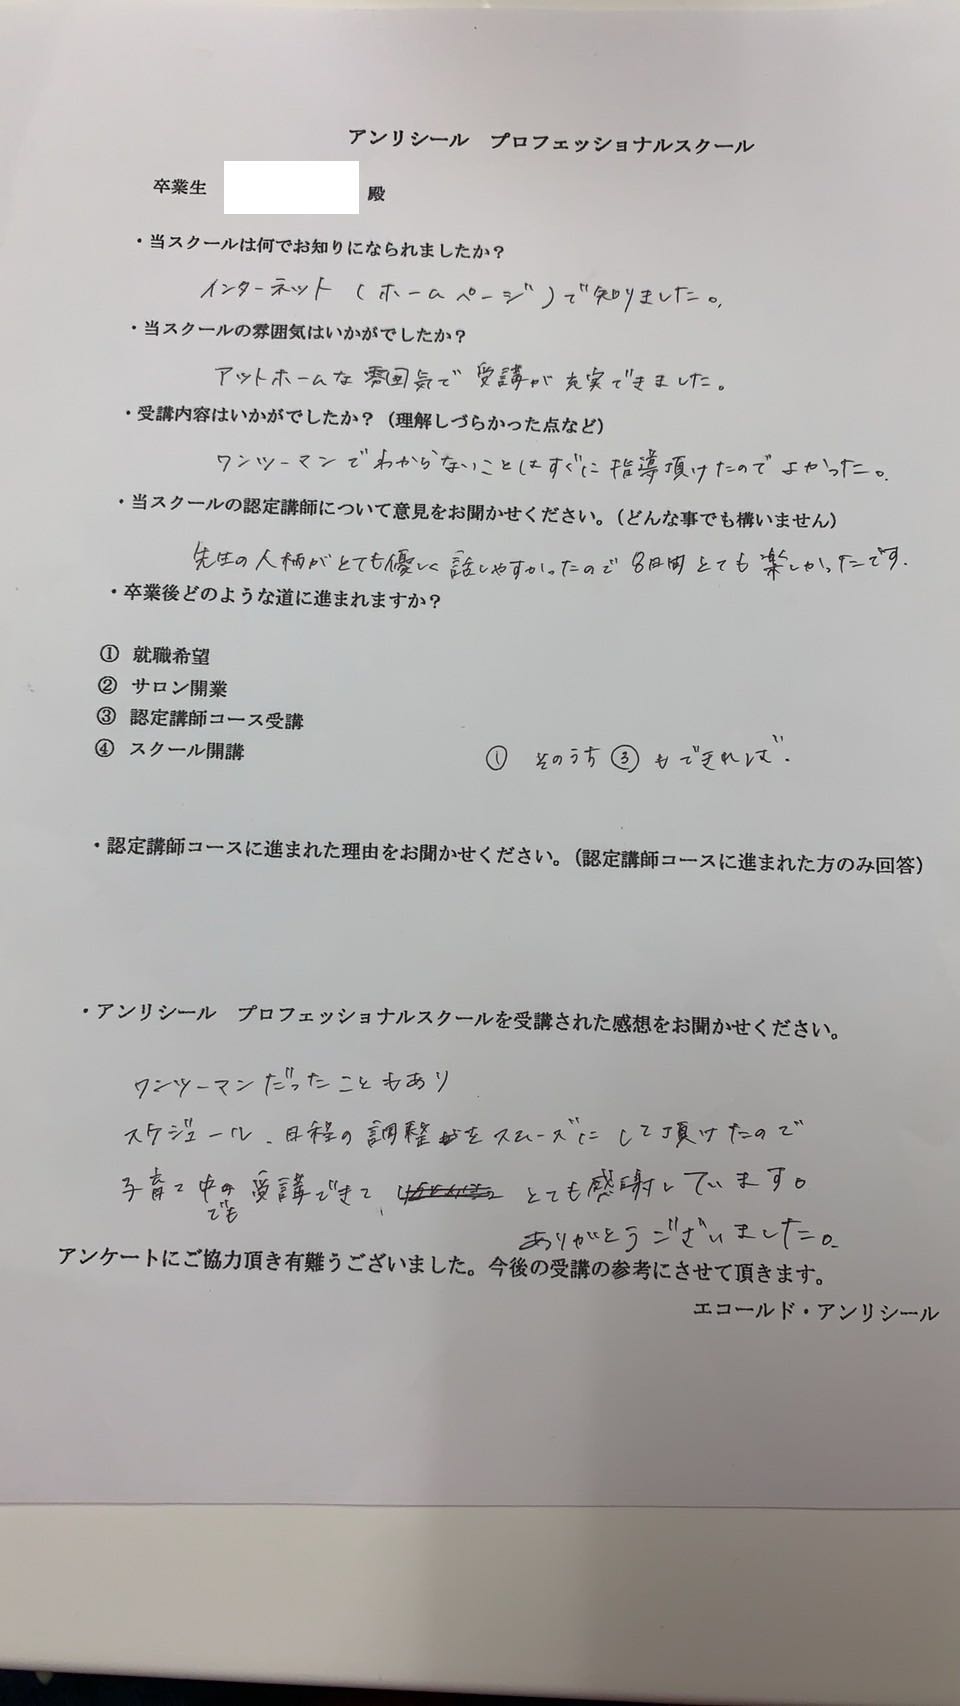 アンリシール　プロフェッショナルスクール
卒業生　殿
・当スクールは何でお知りになられましたか？
インターネット（ホームページ）で知りました。
・当スクールの雰囲気はいかがでしたか？
アットホームな雰囲気で受講が充実できました。
・受講内容はいかがでしたか？（理解しづらかった点など）
ワンツーマンでわからないことはすぐに指導頂けたのでよかった。
・当スクールの認定講師について意見をお聞かせください。（どんな事でも構いません）
先生の人柄がとても優しく話しやすかったので8日間とても楽しかったです.
・卒業後どのような道に進まれますか？
① 就職希望
② サロン開業
③ 認定講師コース受講
④ スクール開講
① そのうち③もできれば.
・認定講師コースに進まれた理由をお聞かせください。（認定講師コースに進まれた方のみ回答）
・アンリシール　プロフェッショナルスクールを受講された感想をお聞かせください。
ワンツーマンだったこともあり
スケジュール、日程の調整をスムーズにして頂けたので
子育て中でも受講できて、とても感謝しています。
ありがとうございました。
アンケートにご協力頂き有難うございました。今後の受講の参考にさせて頂きます。
エコールド・アンリシール